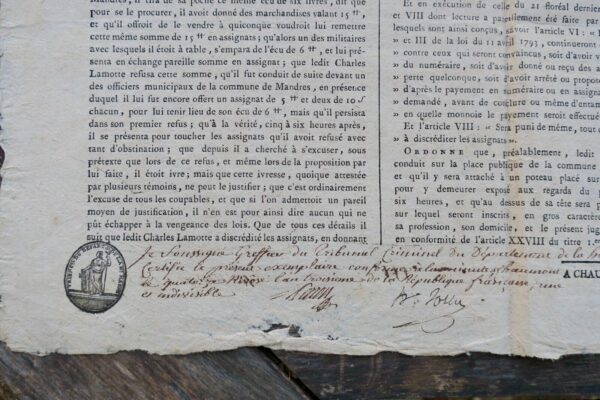 Mandres, il tira de sa poche ce même écu de six livres, dit que
pour se le procurer, il avoit donné des marchandises valant 15 ᵗᵗ,
et qu'il offroit de le vendre à quiconque voudroit lui remettre
cette même somme de 15 ᵗᵗ en assignats ; qu'alors un des militaires
avec lesquels il étoit à table, s'empara de l'écu de 6 ᵗᵗ, et lui pré-
senta en échange pareille somme en assignats ; que ledit Charles
Lamotte refusa cette somme, qu'il fut conduit de suite devant un
des officiers municipaux de la commune de Mandres, en présence
duquel il lui fut encore offert un assignat de 5 ᵗᵗ et deux de 10 ˢ
chacun, pour lui tenir lieu de son écu de 6 ᵗᵗ, mais qu'il persista
dans son premier refus ; qu'à la vérité, cinq à six heures après,
il se présenta pour toucher les assignats qu'il avoit refusé avec
tant d'obstination ; que depuis il a cherché à s'excuser, sous
prétexte que lors de ce refus, et même lors de la proposition par
lui faite, il étoit ivre ; mais que cette ivresse, quoique attestée
par plusieurs témoins, ne peut le justifier ; que c'est ordinairement
l'excuse de tous les coupables, et que si l'on admettoit un pareil
moyen de justification, il n'en est pour ainsi dire aucun qui ne
pût échapper à la vengeance des lois. Que de tous ces détails il
suit que ledit Charles Lamotte a discrédité les assignats, en donnant
Et en exécution de celle du 21 floréal dernier
et VIII dont lecture a pareillement été faite par
lesquels sont ainsi conçus, savoir l'article VI : «
» et III de la loi du 11 avril 1793, continueront
» contre ceux qui seront convaincus, soit d'avoir
» du numéraire, soit d'avoir donné ou reçu des a
» perte quelconque, soit d'avoir arrêté ou propo
» d'après le payement en numéraire ou en assignat
» demandé, avant de conclure ou même d'entam
» en quelle monnoie le payement seroit effectué
Et l'article VIII : « Sera puni de même, tout
» à discréditer les assignats ».
ORDONNE que, préalablement, ledit
conduit sur la place publique de la commune
et qu'il y sera attaché à un poteau placé sur
pour y demeurer exposé aux regards du p
six heures, et qu'au dessus de sa tête sera p
sur lequel seront inscrits, en gros caractère
sa profession, son domicile, et le présent jug
en conformité de l'article XXVIII du titre 1.er
A CHAU
Je Soussigné Greffier du Tribunal Criminel du Département de la
Certifie le présent exemplaire conforme a la minute Chaumont
le quatorze l'an troisieme de la République française, une
et indivisible